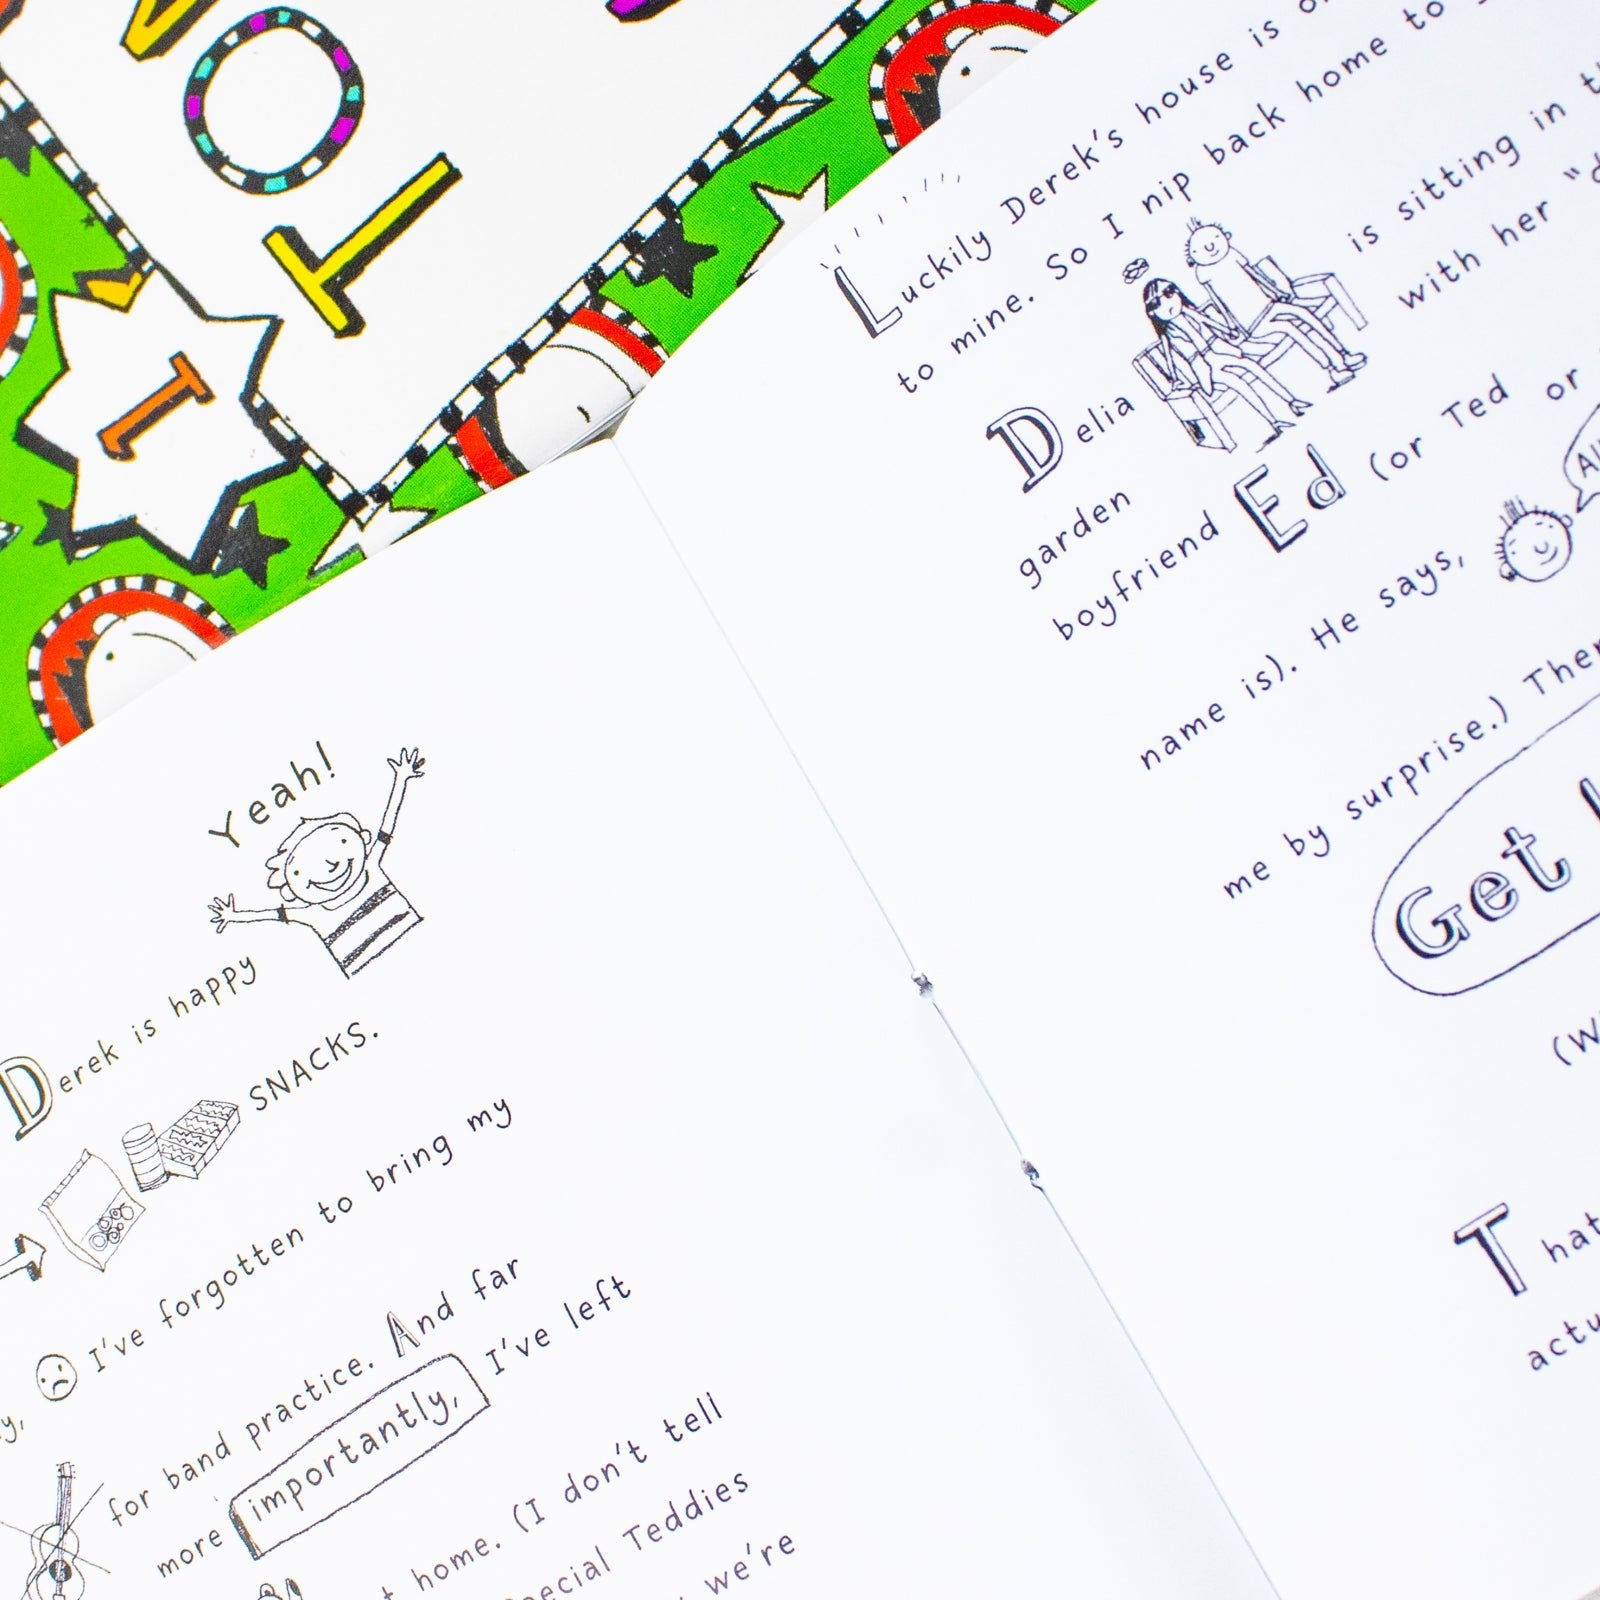 OT
1
Yeah!
Derek is happy
SNACKS.
I've forgotten to bring my
for band practice. And far
more importantly, I've left
home. (I don't tell
Special Teddies
we're
Luckily Derek's house is
to mine. So I nip back home to
Delia is sitting in
garden with her
boyfriend Ed (or Ted or
name is). He says,
me by surprise.)
Get
That